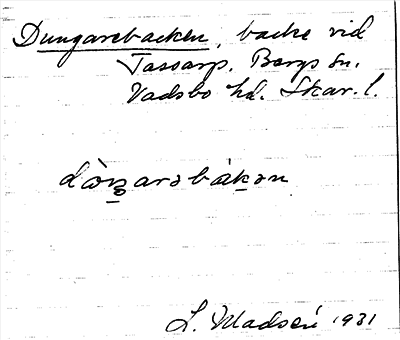 Dungarebacken, backe vid
Tasoarp. Bergs sn.
Vadsbo hd. Skar. l.
dòŋarəbàkən
L. Madsén 1931